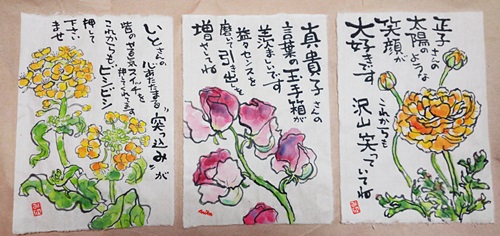 正子さんの
太陽のような
笑顔が
大好きです
これからも
沢山笑っていてね
真貴子さんの
言葉の玉手箱が
羨ましいです
益々センスを
磨いて引き出しを
増やしてね
いとさんの
心あたたまる
"突っ込み"が
皆のやる気スイッチを
押してくれてます
これからもビシビシ
押して
下さい
ませ